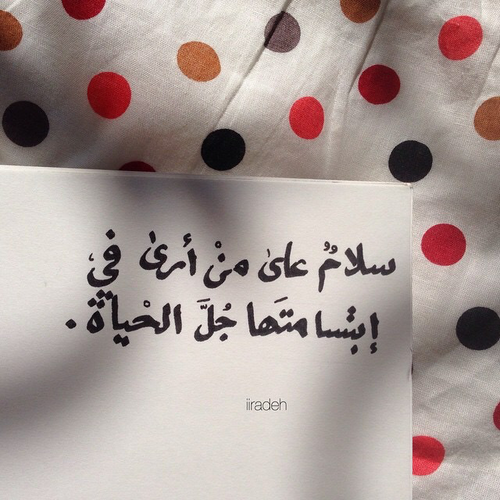 سلامٌ على منْ أرىٰ في
إبتسامتَها جُلَّ الحْياة .
iiradeh